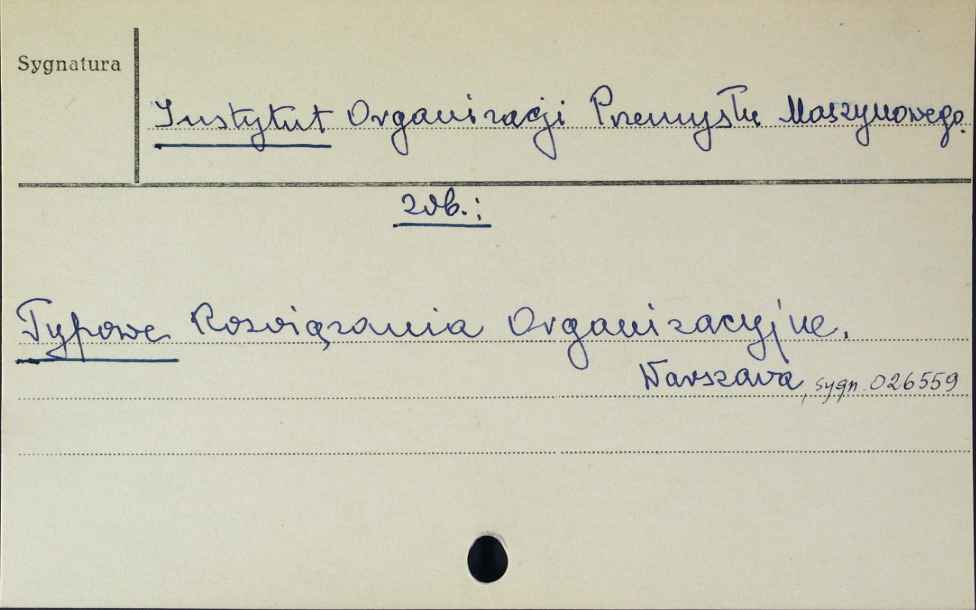 Sygnatura
Instytut Organizacji Przemysłu Maszynowego.
zob.:
Typowe Rozwiązania Organizacyjne.
Warszawa, sygn. 026559